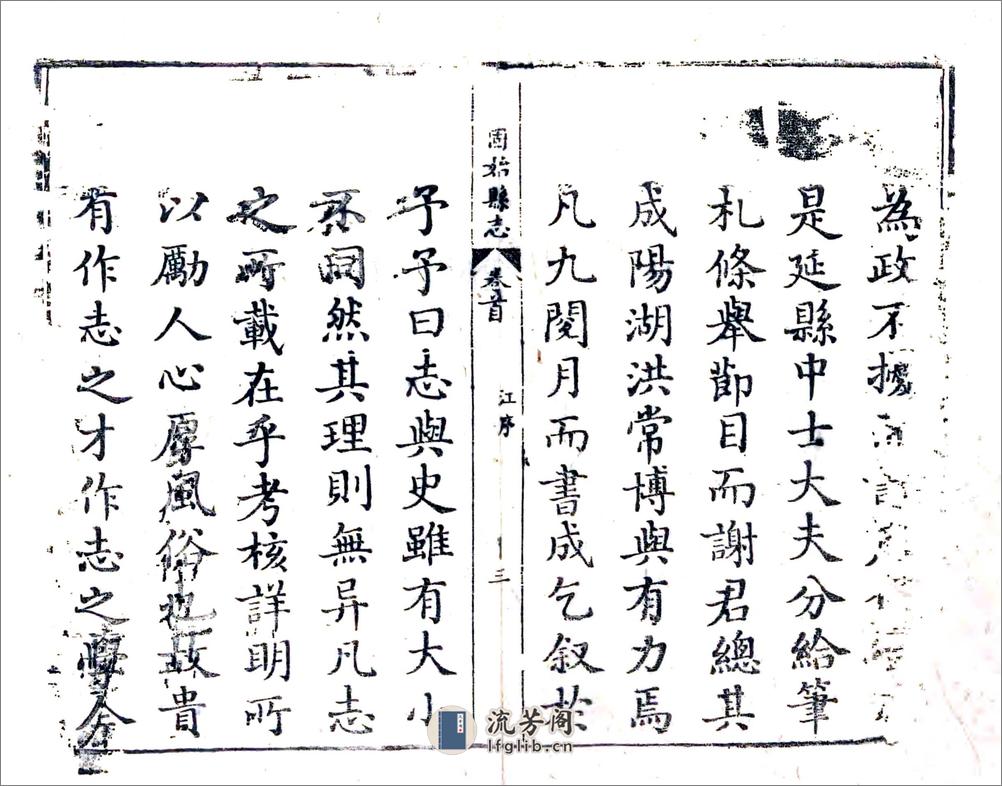 為政不據
是延縣中士大夫分給筆
札條舉節目而謝君總其
成陽湖洪常博與有力焉
凡九閱月而書成乞叙於
固始縣志
卷首
江序
三
予予曰志與史雖有大小
不同然其理則無异凡志
之所載在乎考核詳明所
以勵人心厚風俗也故貴
有作志之才作志之學今
流芳阁
lfglib.cn